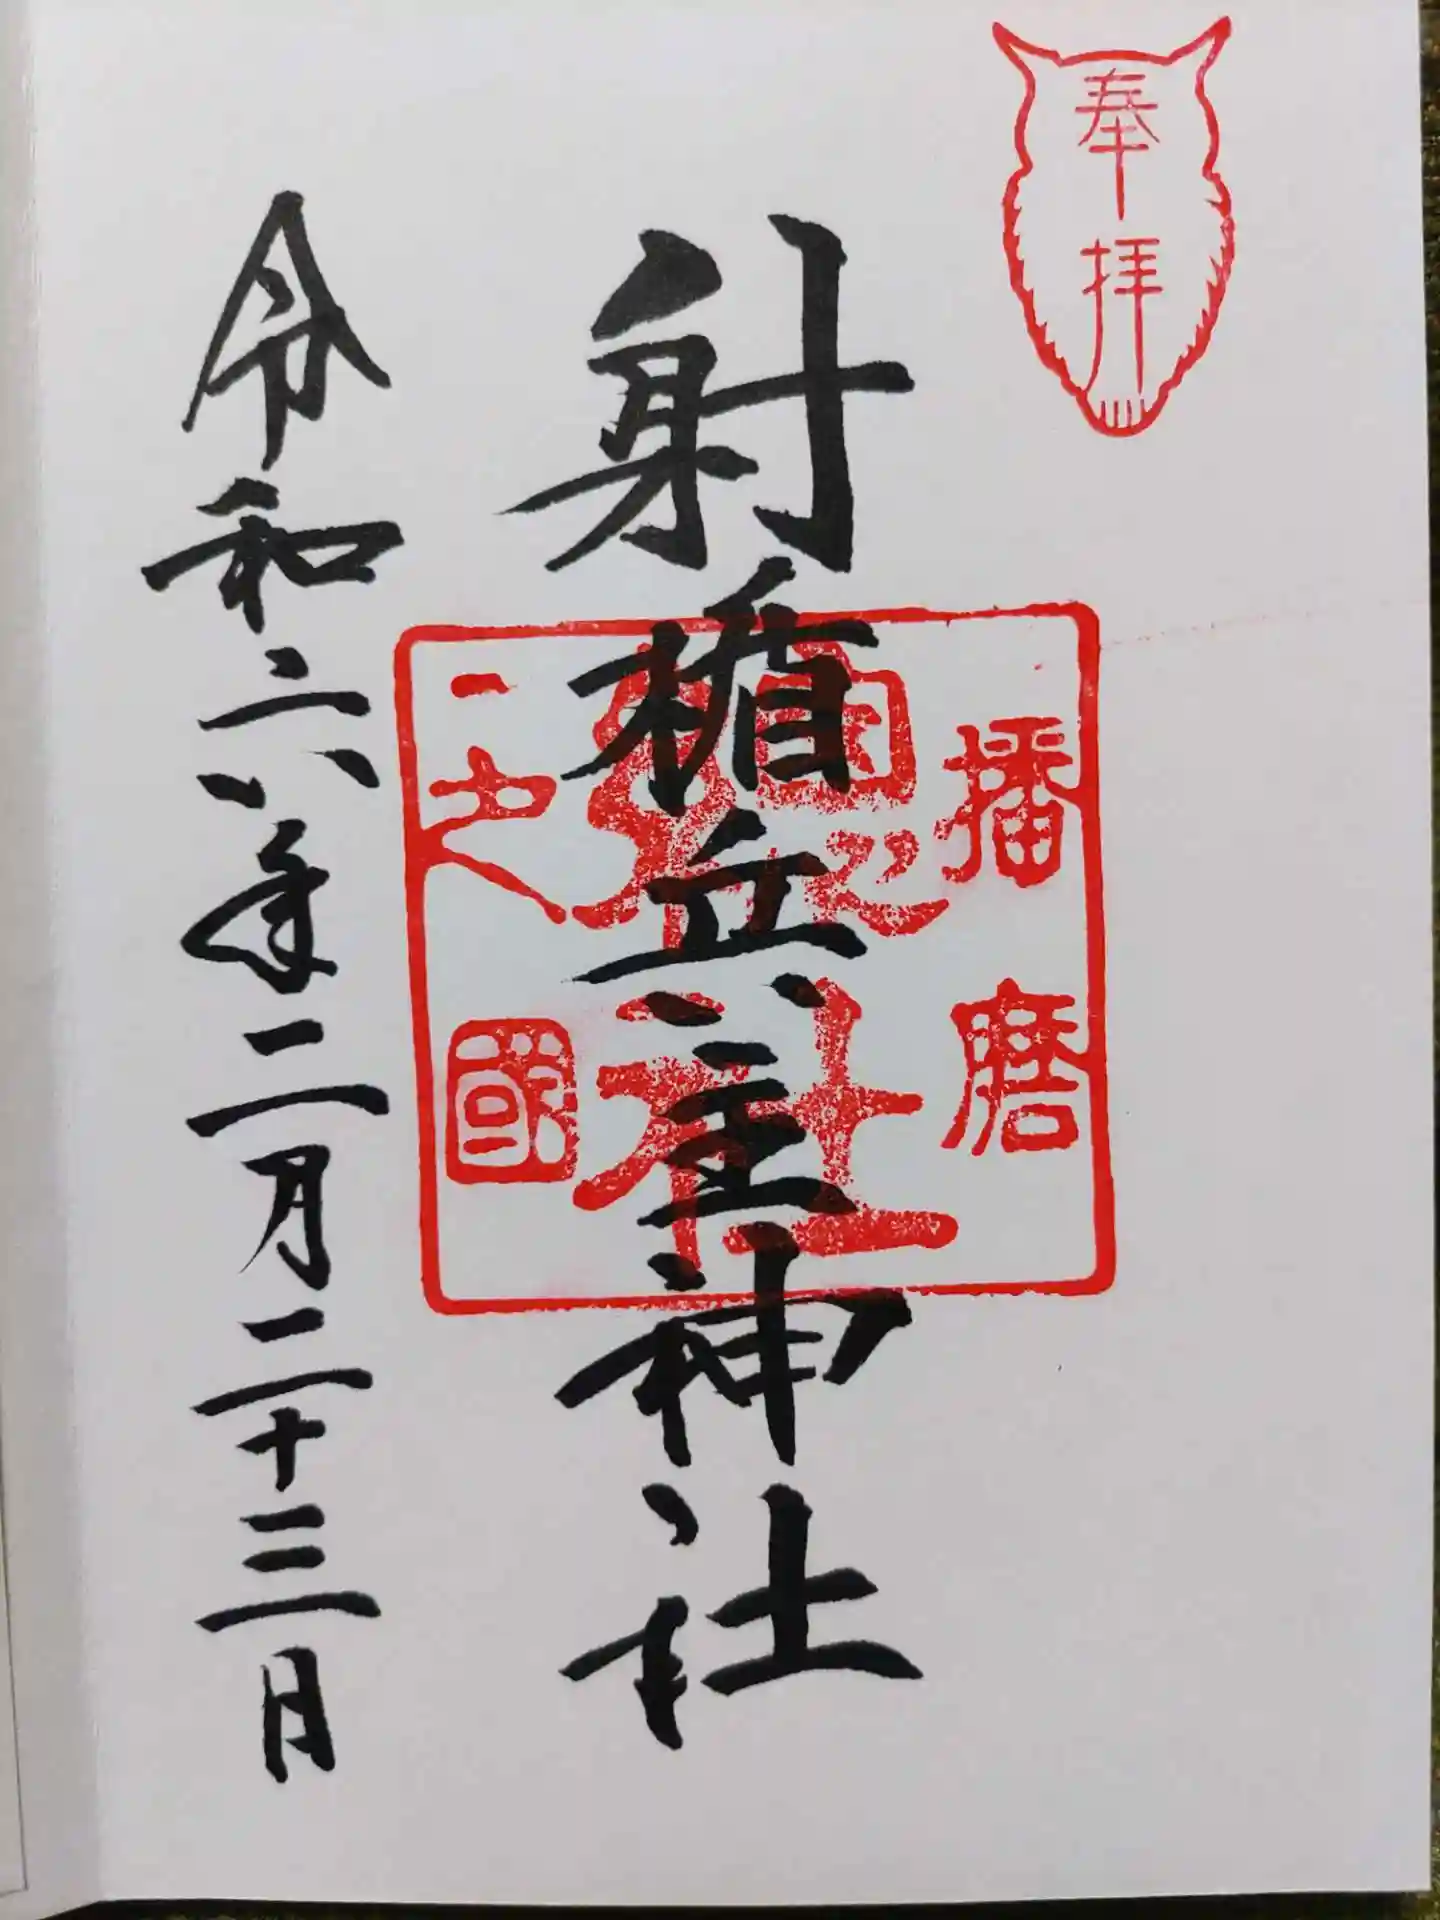 奉拝
射楯兵主神社
播磨
國
総社
一之
宮
令和六年二月二十三日